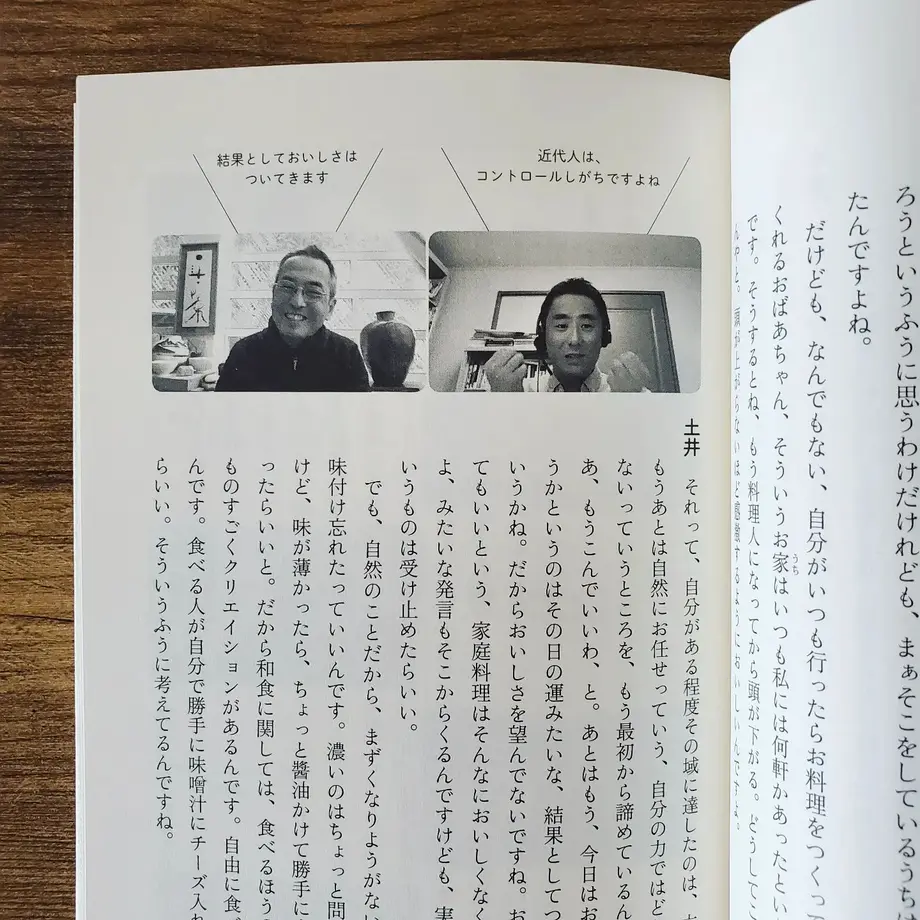 ろうというふうに思うわけだけれども、まぁそこをしているうち
たんですよね。
だけども、なんでもない、自分がいつも行ったらお料理をつくっ
くれるおばあちゃん、そういうお家はいつも私には何軒かあったとい
です。そうするとね、もう料理人になってから頭が下がる。どうしてこ
んやと。頭が上がらないほど感激するようにおいしいんですよ。
近代人は、
コントロールしがちですよね
結果としておいしさは
ついてきます
土井 それって、自分がある程度その域に達したのは、
もうあとは自然にお任せっていう、自分の力ではど
ないっていうところを、もう最初から諦めているん
あ、もうこんでいいわ、と。あとはもう、今日はお
うかというのはその日の運みたいな、結果としてつ
いうかね。だからおいしさを望んでないですね。お
てもいいという、家庭料理はそんなにおいしくな
よ、みたいな発言もそこからくるんですけども、実
いうものは受け止めたらいい。
でも、自然のことだから、まずくなりようがない
味付け忘れたっていいんです。濃いのはちょっと問
けど、味が薄かったら、ちょっと醬油かけて勝手に
ったらいいと。だから和食に関しては、食べるほう
ものすごくクリエイションがあるんです。自由に食べ
んです。食べる人が自分で勝手に味噌汁にチーズ入れ
らいい。そういうふうに考えてるんですね。